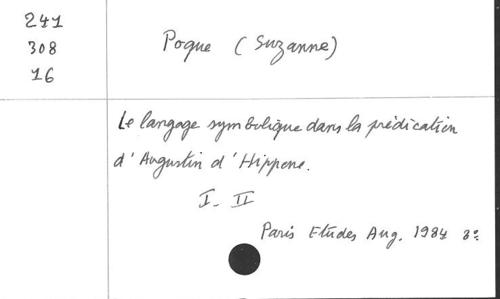 241
308
16
Poque (Suzanne)
Le langage symbolique dans la prédication
d'Augustin d'Hippone.
I-II
Paris Etudes Aug. 1984 8º